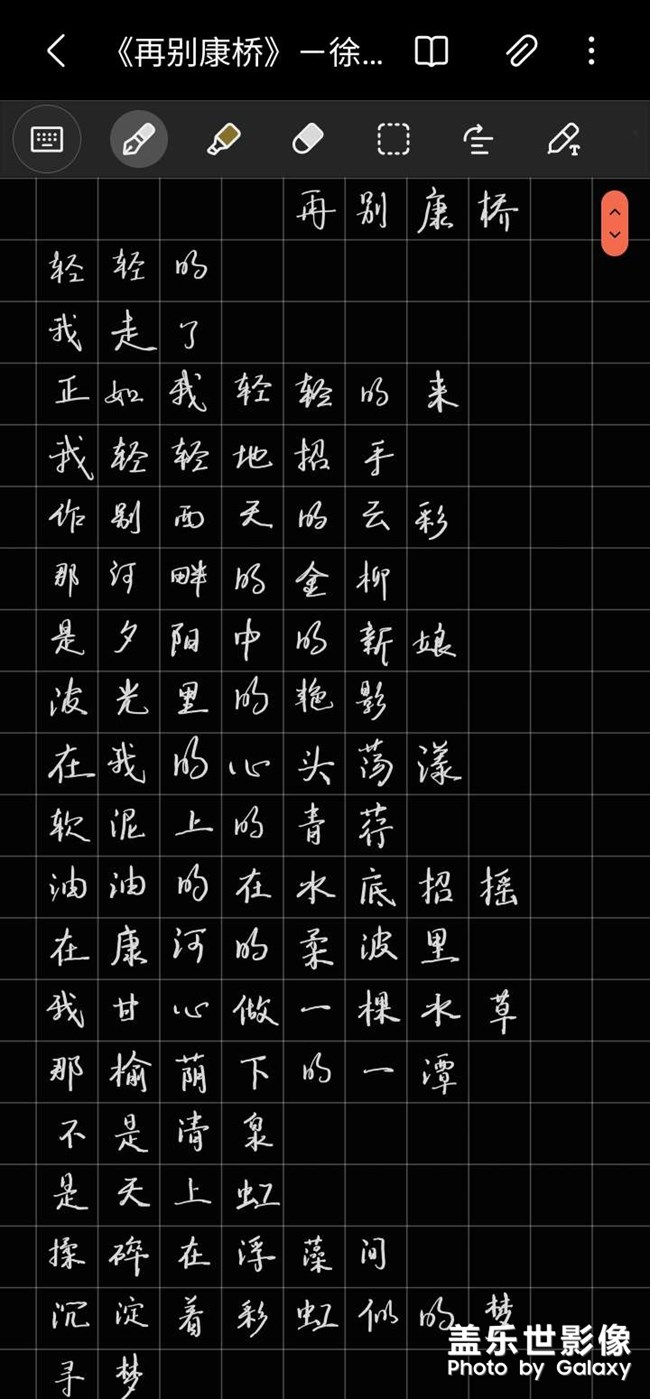 《再别康桥》－徐...
再别康桥
轻轻的
我走了
正如我轻轻的来
我轻轻地招手
作别西天的云彩
那河畔的金柳
是夕阳中的新娘
波光里的艳影
在我的心头荡漾
软泥上的青荇
油油的在水底招摇
在康河的柔波里
我甘心做一棵水草
那榆荫下的一潭
不是清泉
是天上虹
揉碎在浮藻间
沉淀着彩虹似的梦
寻梦
盖乐世影像
Photo by Galaxy